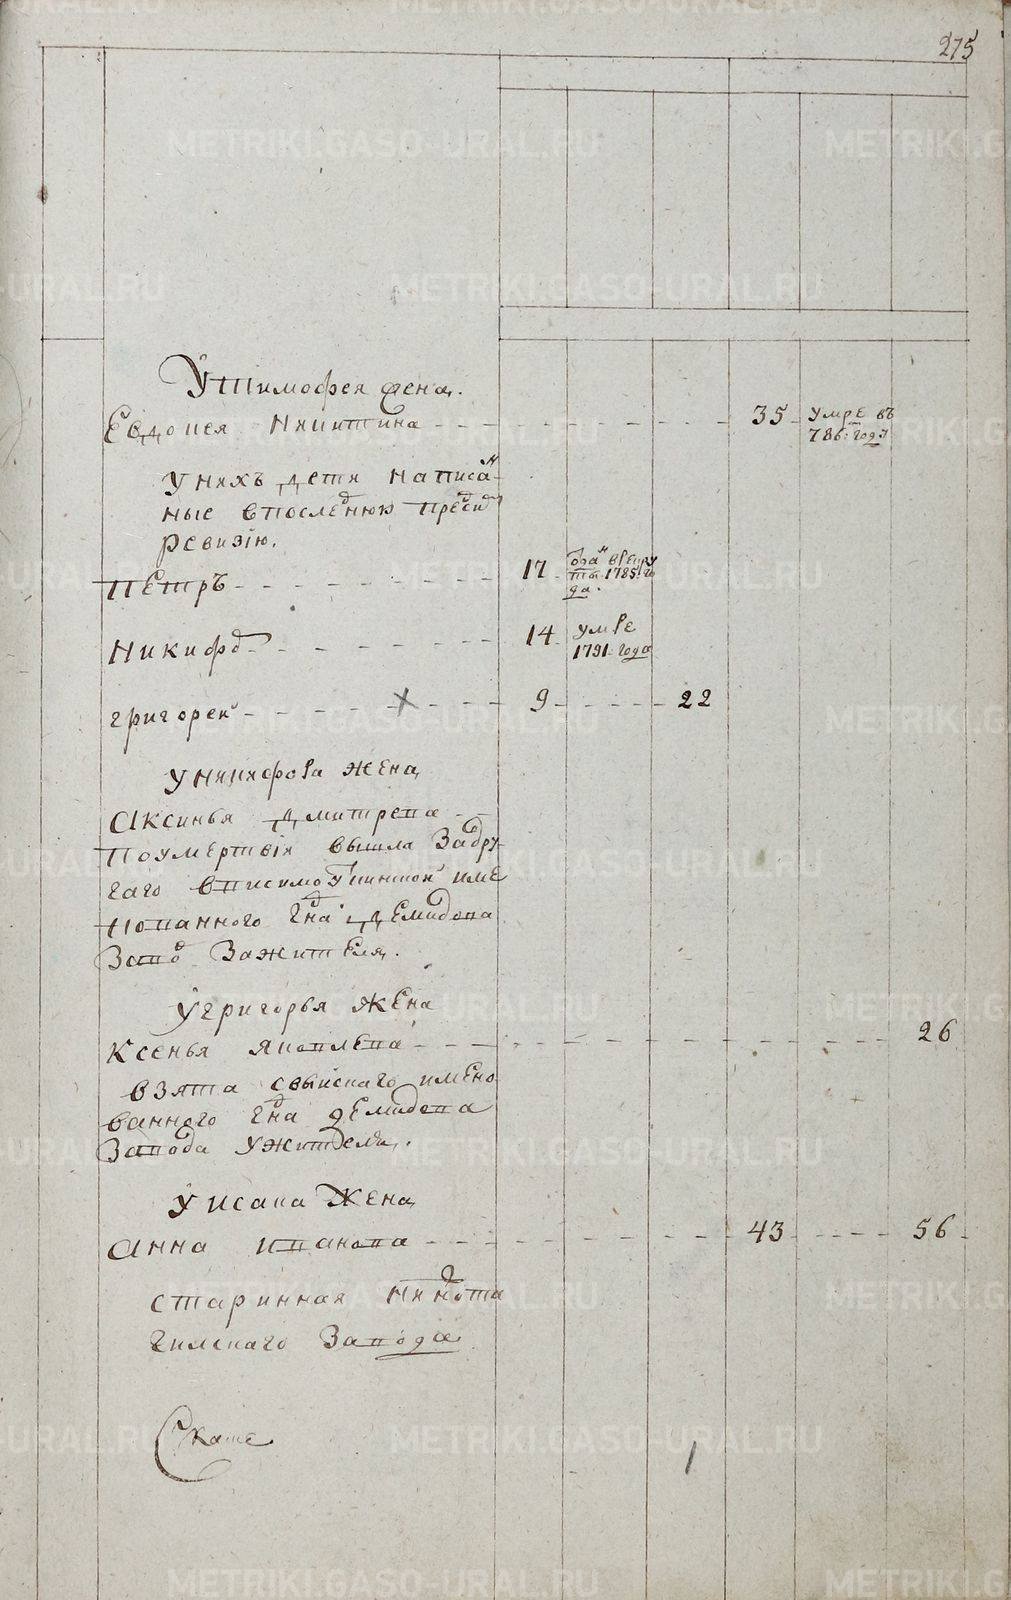 275
У Тимофея жена.
Евдокея Никитина 35 умре въ
786: году
у нихъ дети написан
ные впоследнюю пред сим
ревизiю.
Петръ 17 отдан врекру
ты 1785: го
да.
Никифор 14 умре
1791 года
григореи 9 22
у никифора жена
Аксинья дмитрева
поумертвiи вышла Задру
гаго
нованного Гдна демидова
Завод Зажителя.
у григорья жена
Ксенья яковлева 26
взята свыискаго имено
ванного Гдна демидова
Завода ужителя.
у исака жена
Анна иванова 43 56
старинная нижнота
гилскаго Завода